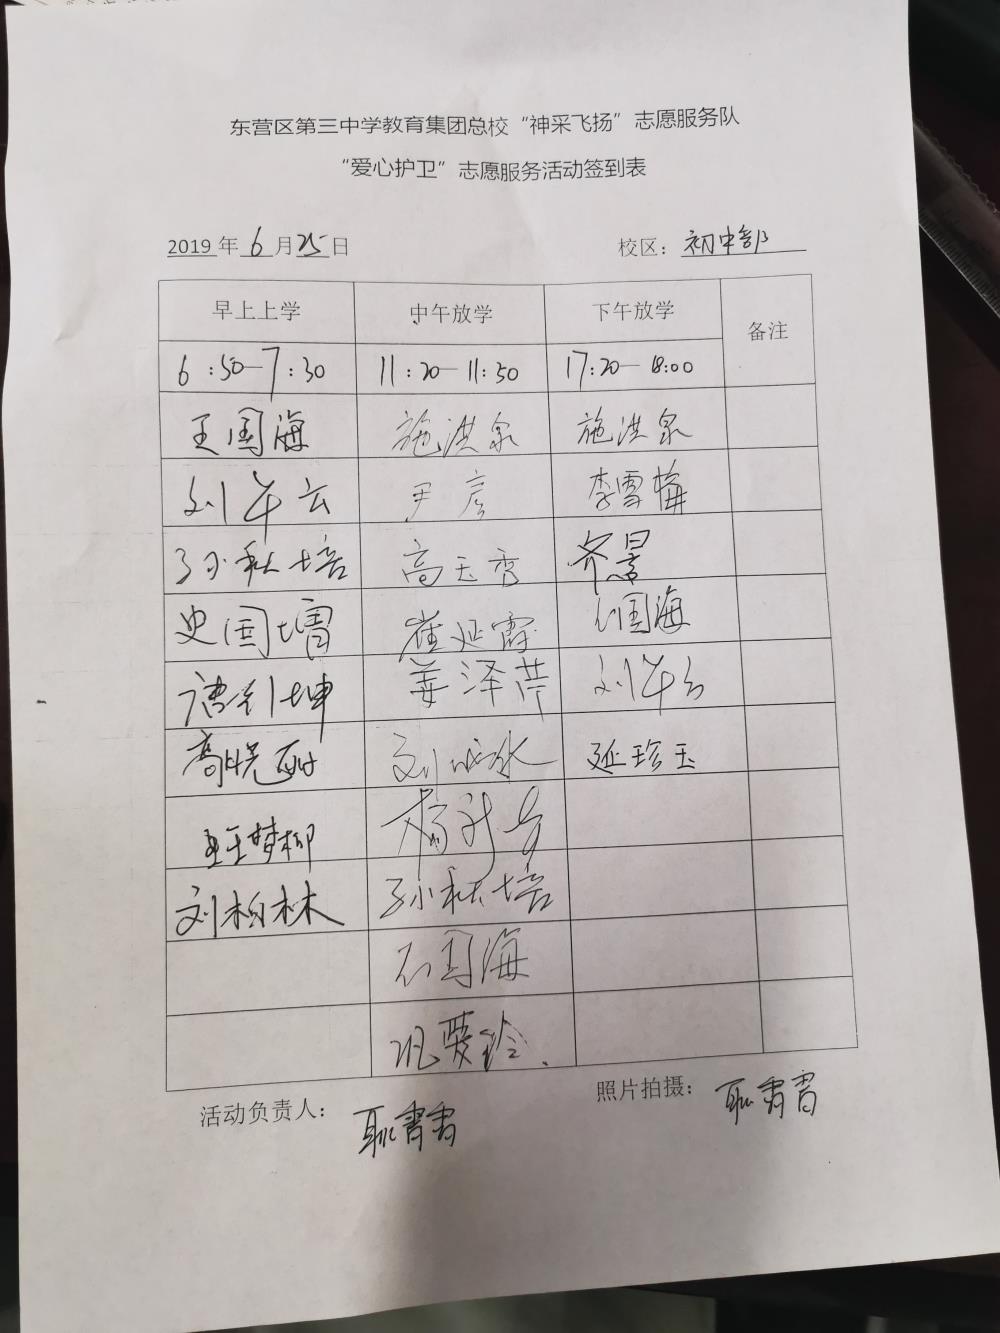 东营区第三中学教育集团总校“神采飞扬”志愿服务队
“爱心护卫”志愿服务活动签到表
2019年6月25日 校区：初中部
早上上学 中午放学 下午放学 备注
6:50-7:30 11:20-11:50 17:20-18:00
王国海 施洪泉 施洪泉
刘年云 尹彦 李雪梅
孙秋培 高玉秀 齐景
史国增 崔延霞 石国海
姜泽芹 刘年云
高悦 刘冰 延珍玉
王梦柳 杨
刘柏林 孙秋培
石国海
巩爱玲
活动负责人： 照片拍摄：